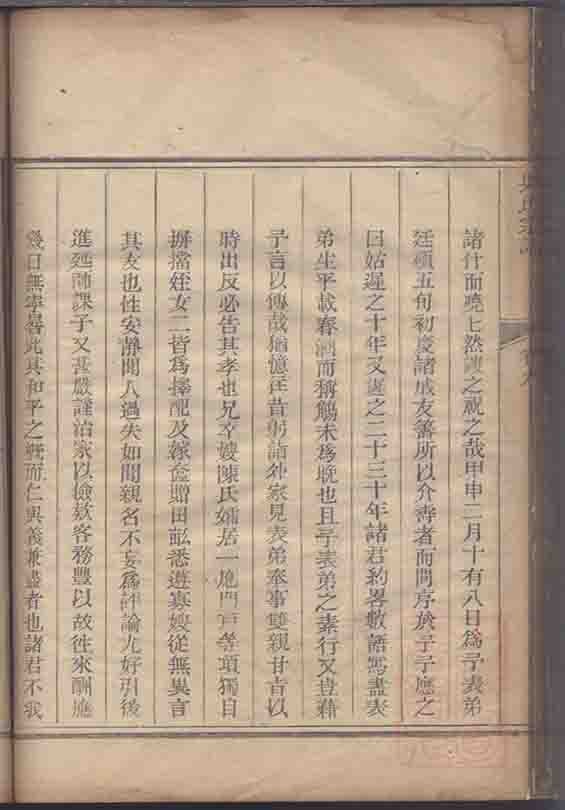 諸什而曉七然謏之祝之哉甲申二月十有八日為予表弟
廷碩五旬初慶諸戚友籌所以介壽者而問序於予予應之
曰姑遲之十年又遲之二十三十年諸君約畧數語寫盡表
弟生平載春酒而稱觴未為晚也且予表弟之素行又豈藉
予言以傳哉猶憶往昔躬詣外家見表弟奉事雙親甘旨以
時出反必告其孝也兄卒嫂陳氏孀居一應門戶等項獨自
摒擋姪女二皆為擇配及嫁奩贈田畝悉遵寡嫂從無異言
其友也性安靜聞人過失如聞親名不妄為評論尤好引後
進延師課子又甚嚴謹治家以儉欵客務豐以故往來酬應
幾日無寧晷此其和平之 而仁與義兼盡者也諸君不我